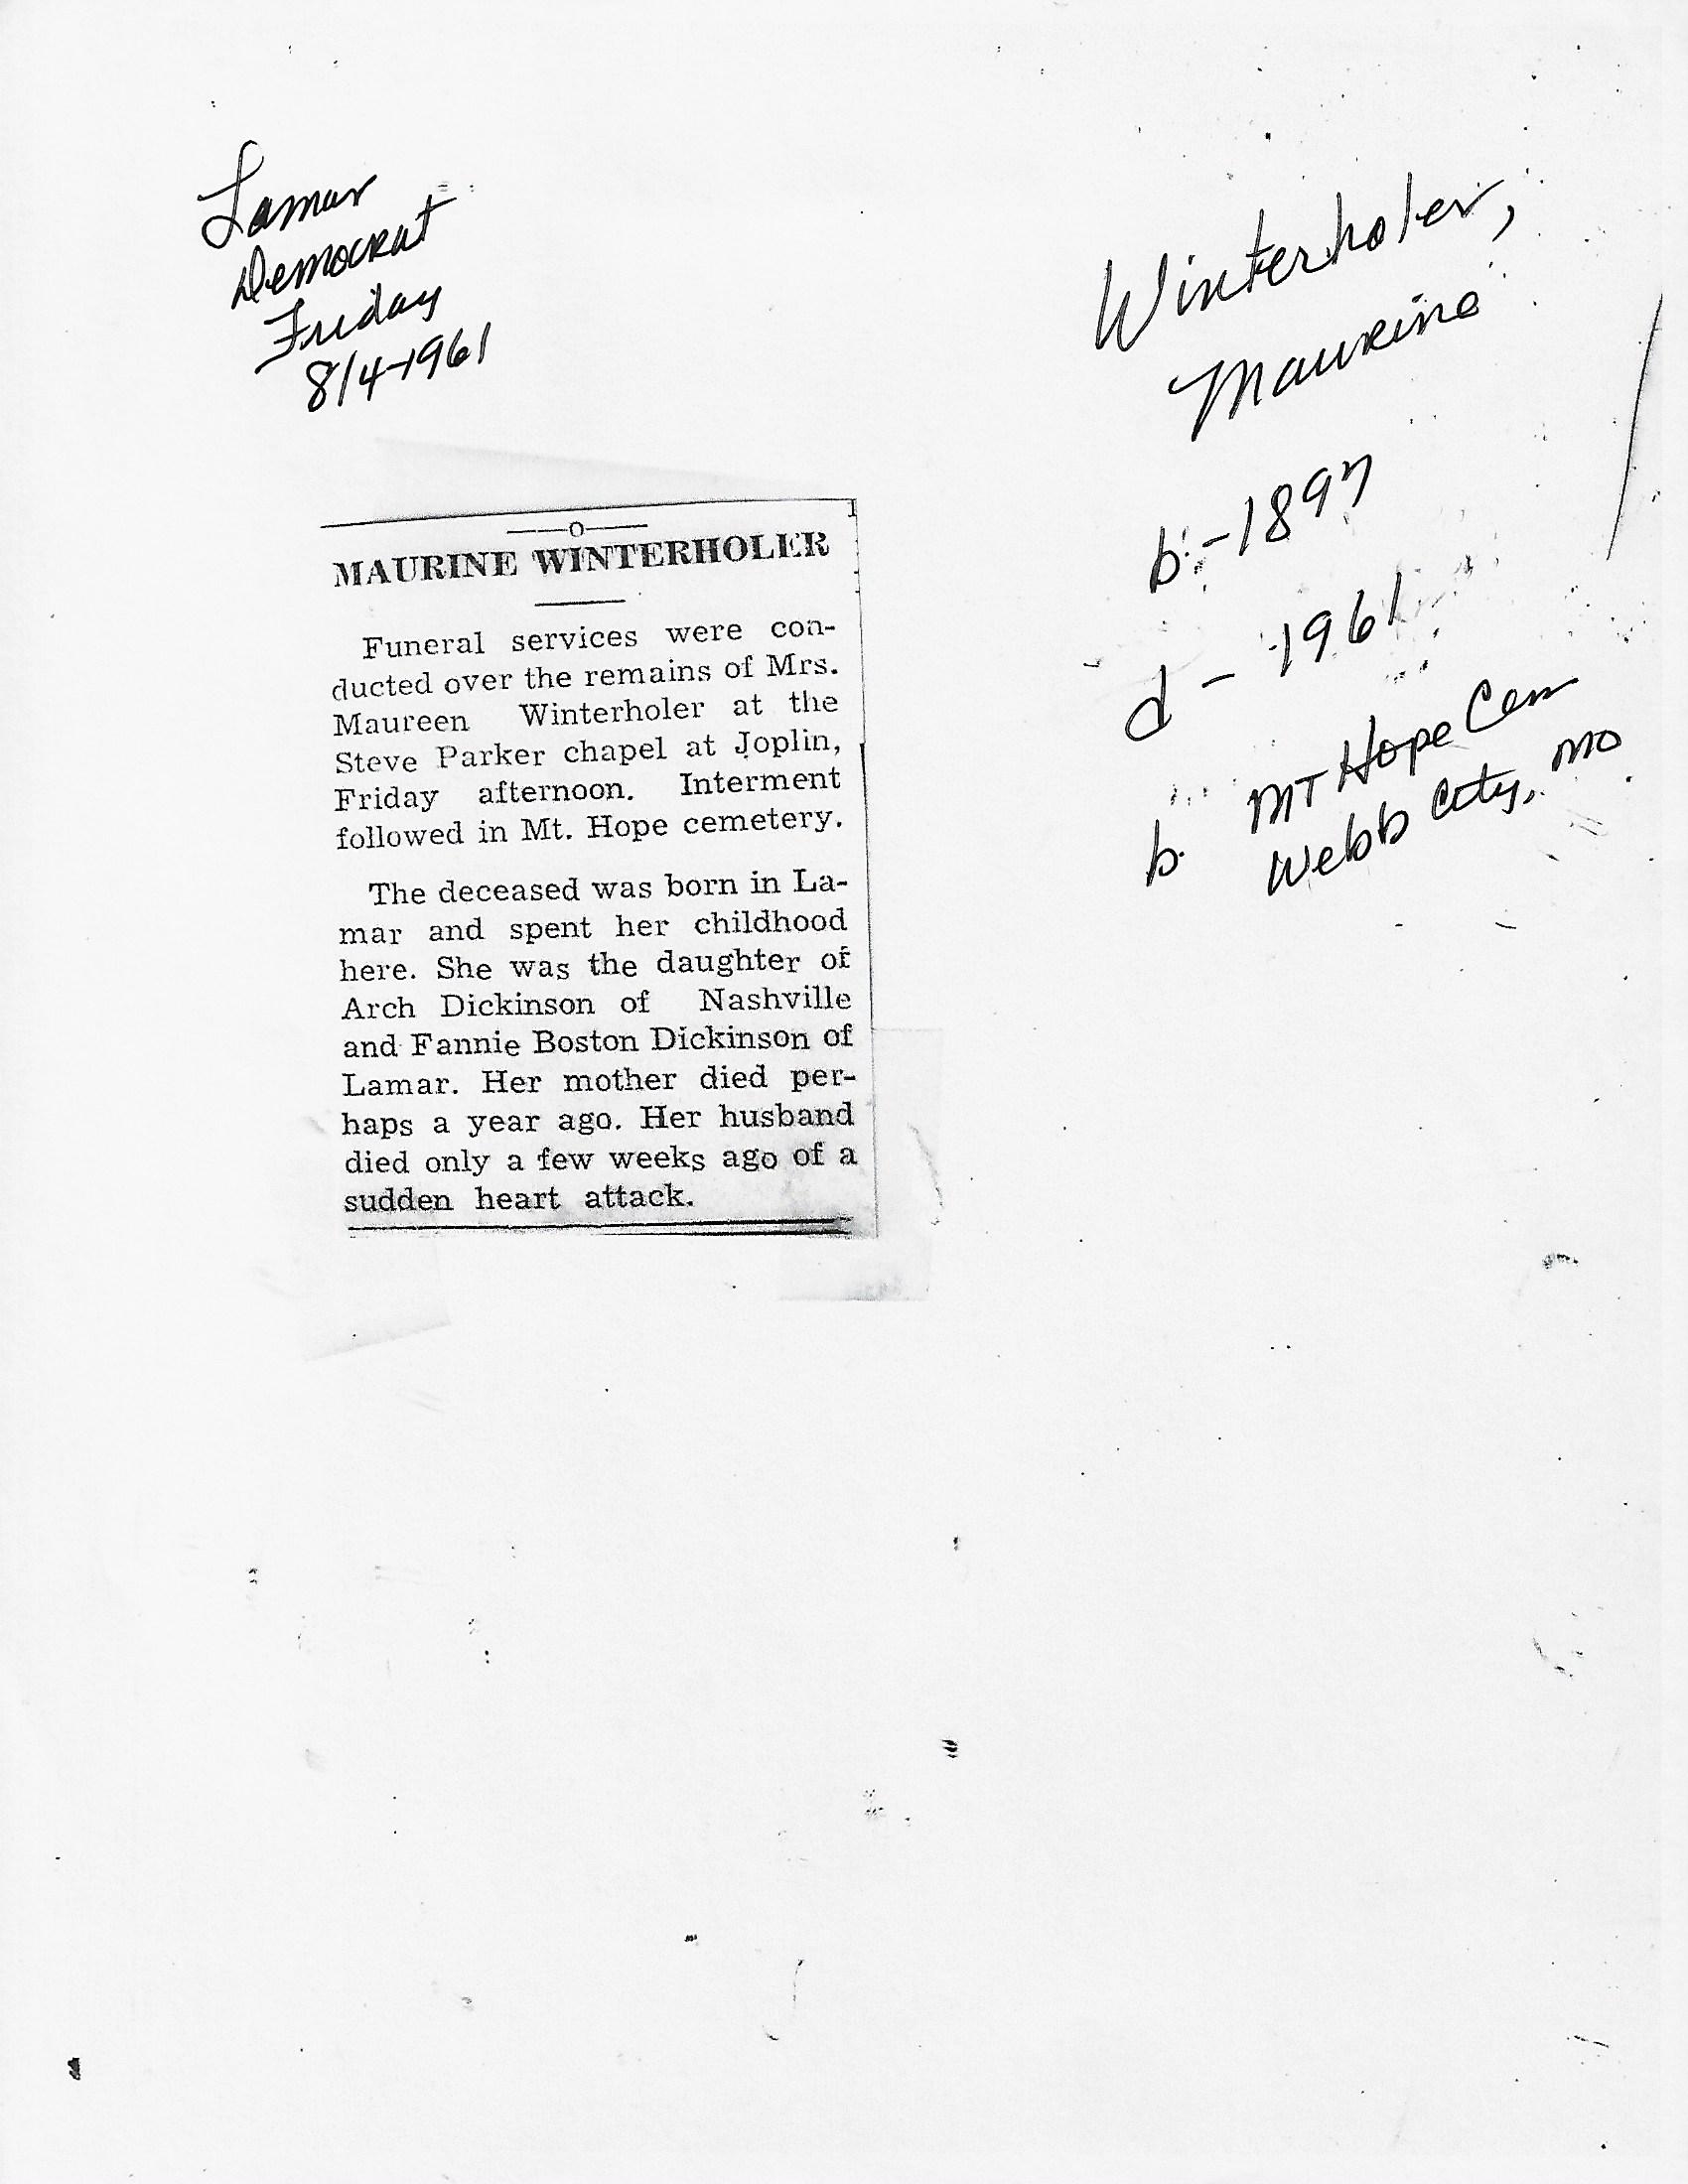 Lamar
Democrat
Friday
8/4-1961
Winterholer,
Maurine
b.-1897
d-1961
b. MT Hope Cem
Webb City, MO
—o—
MAURINE WINTERHOLER
Funeral services were con-
ducted over the remains of Mrs.
Maureen Winterholer at the
Steve Parker chapel at Joplin,
Friday afternoon. Interment
followed in Mt. Hope cemetery.
The deceased was born in La-
mar and spent her childhood
here. She was the daughter of
Arch Dickinson of Nashville
and Fannie Boston Dickinson of
Lamar. Her mother died per-
haps a year ago. Her husband
died only a few weeks ago of a
sudden heart attack.